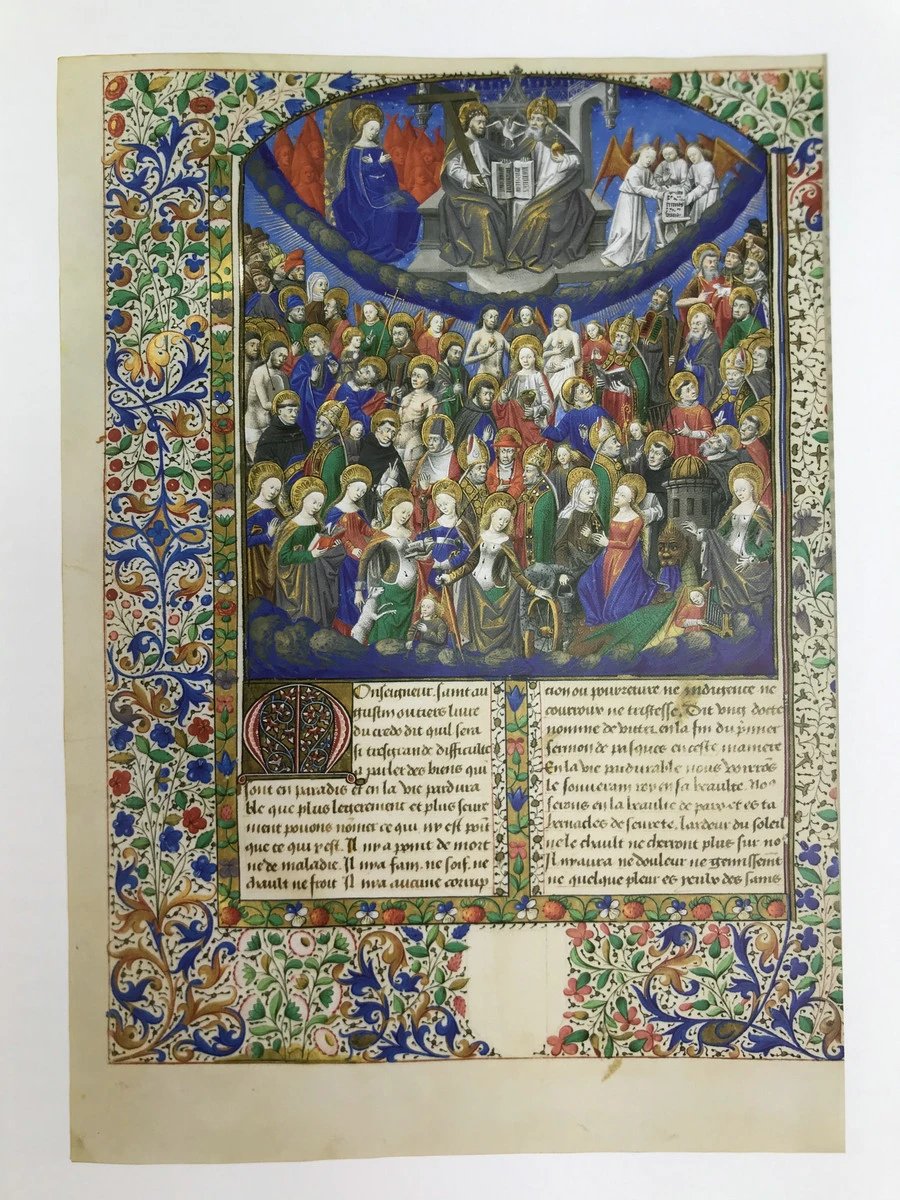 Monseigneur saint au
gustin ou tiers livre
du credo dit quil sera
si tresgrande difficulte
a parler des biens qui
sont en paradis et en la vie pardura
ble que plus legierement et plus seure
ment pouons nomer ce qui ny est point
que ce qui y est. Il ny a point de mort
ne de maladie. Il ny a fain. ne soif. ne
chault ne froit Il ny a aucune corrup
cion ou pourete ne indigence ne
courroux ne tristesse. Dit ung docte
nomme de vitrei en la fin du pmier
sermon de pasques en ceste maniere
En la vie pardurable nous verrõs
le souverain roy en sa beaulte. No9
serons en la beaulte de paix et es ta
bernacles de seurete. Lardeur du soleil
ne le chault ne cherront plus sur no9
Il ny aura ne douleur ne gemissemt
ne quelque pleur es yeulx des sains